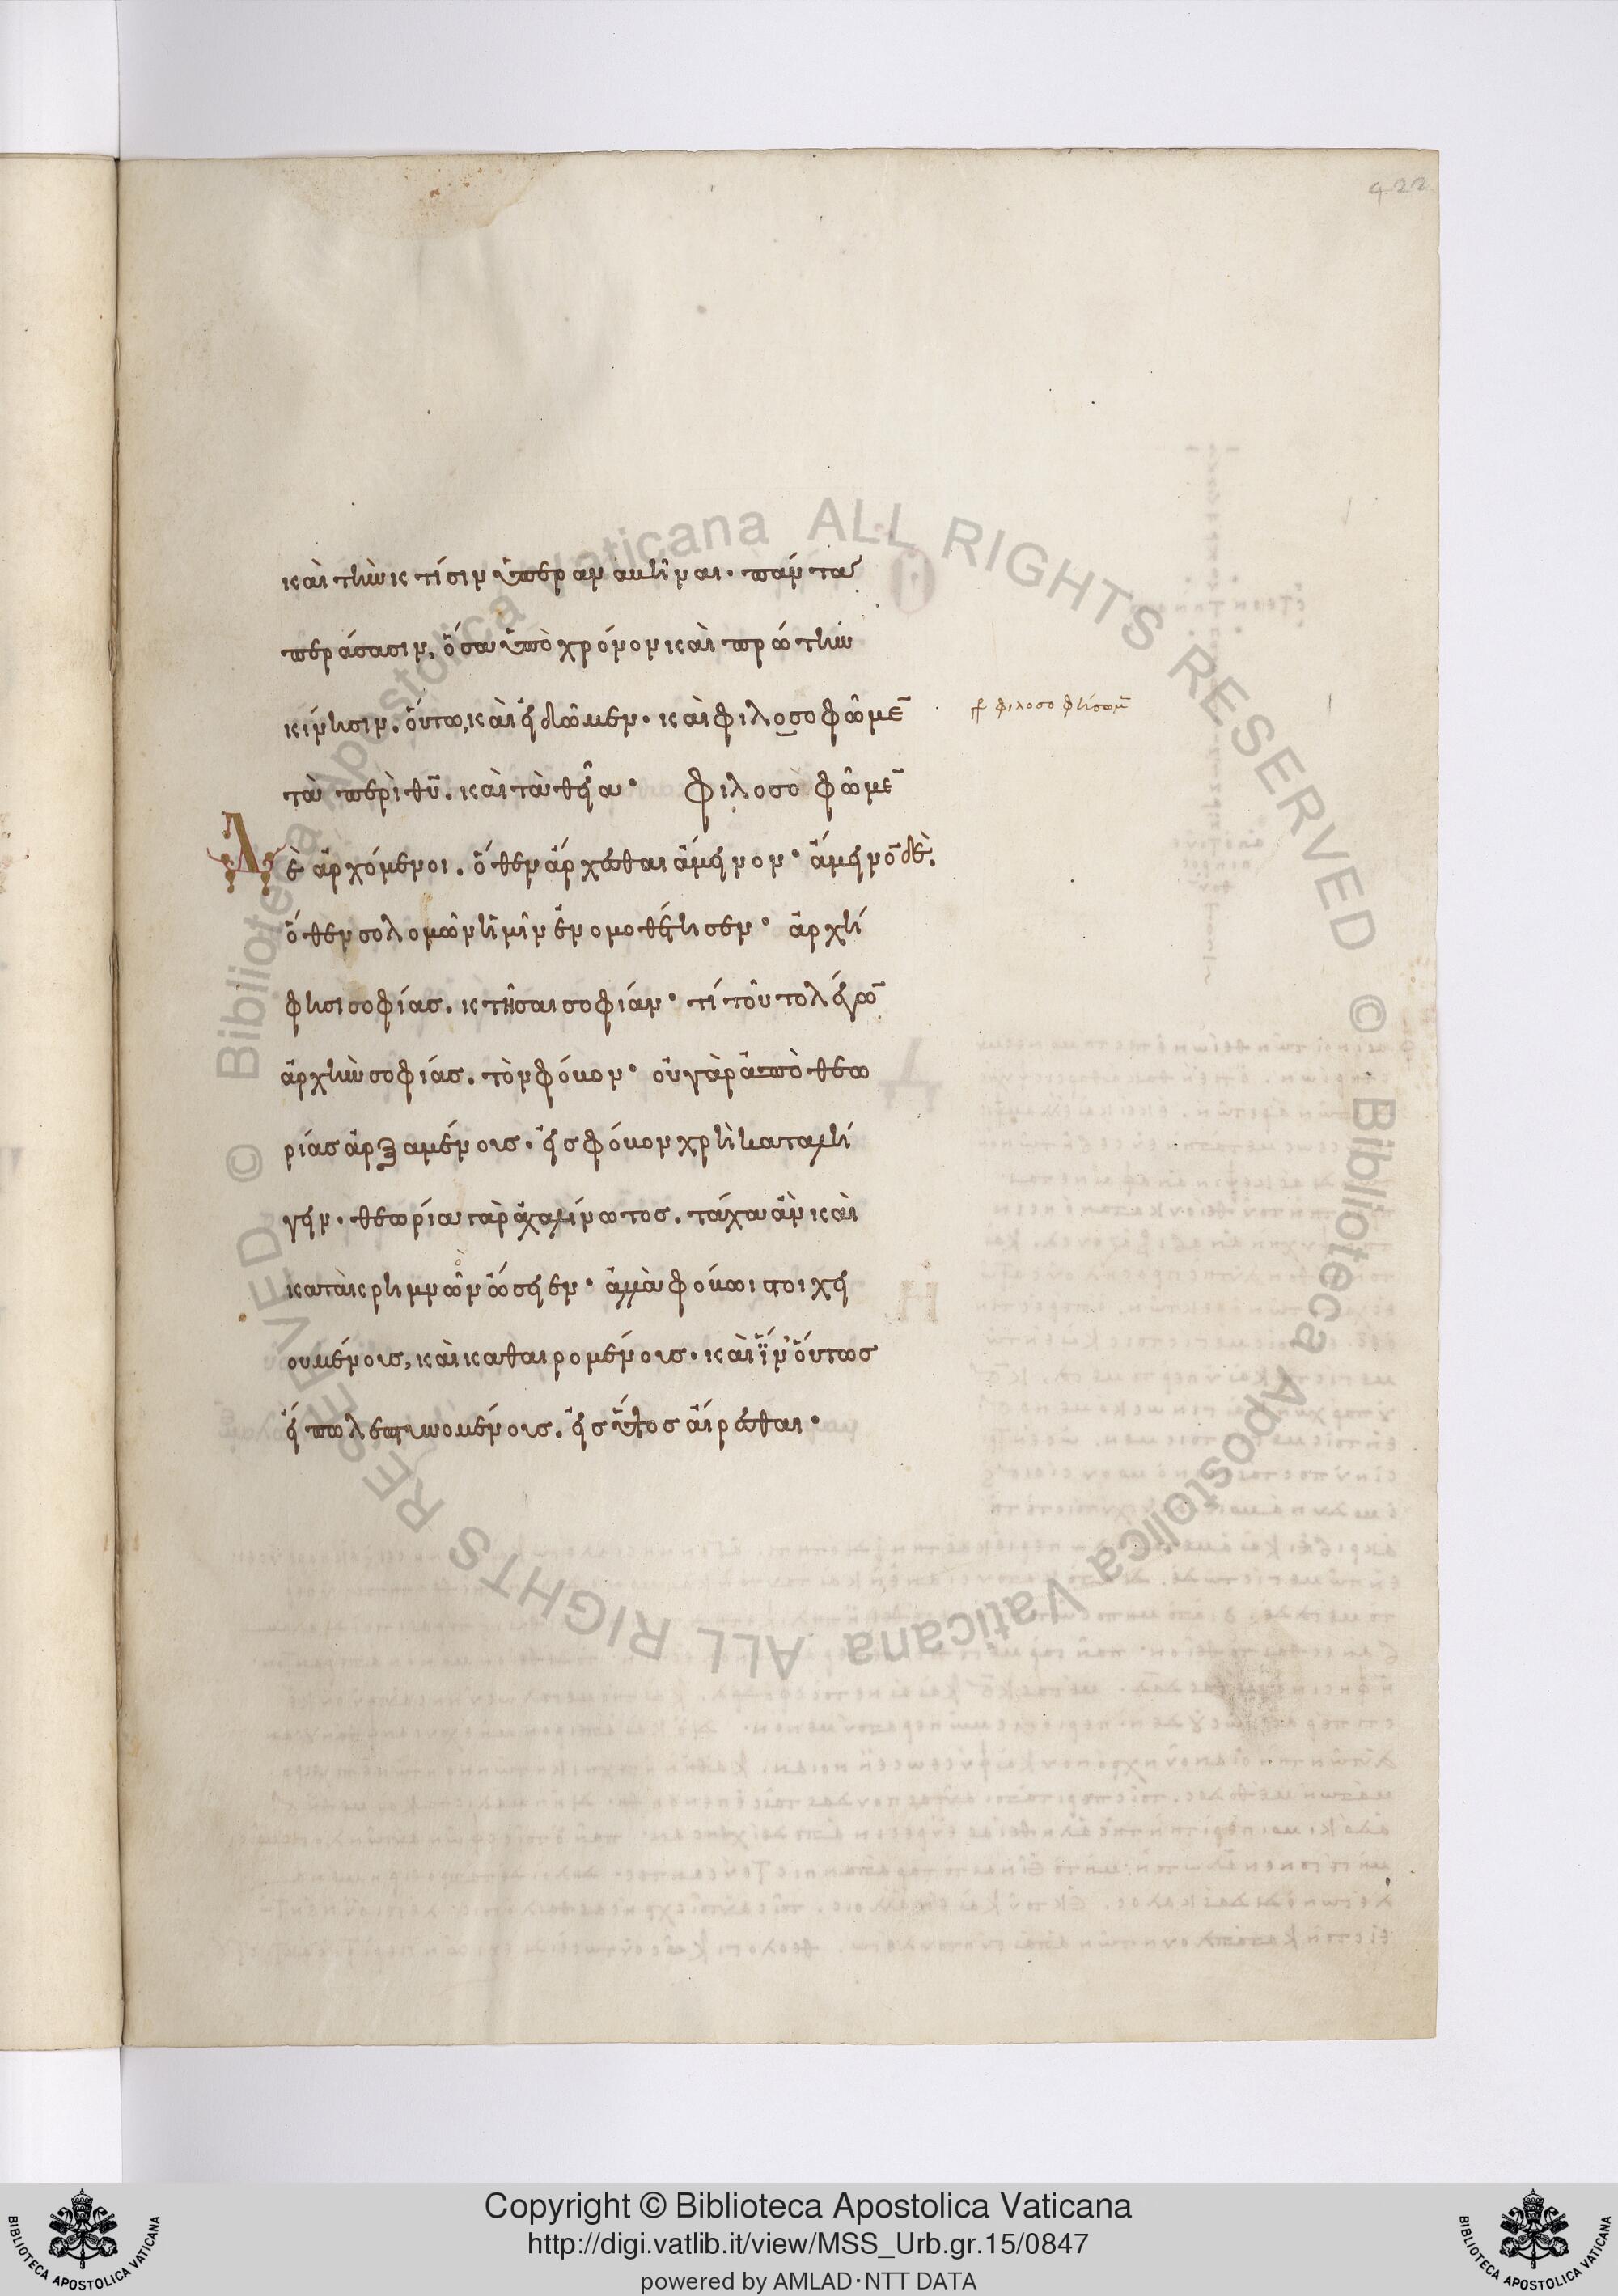 422
καὶ τὴν κτίσιν ὑπεραναβῆναι· πάντα
περάσασιν, ὅσα ὑπὸ χρόνον καὶ πρώτην
κίνησιν. οὕτω, καὶ εἰδῶμεν· καὶ φιλοσοφῶμε̅
τὰ περὶ θυ̅. καὶ τὰ θεῖα· φιλοσοφῶμε̅
φιλοσοφήσωμ̅
Δ
ὲ ἀρχόμενοι. ὅθεν ἄρχεσθαι ἄμεινον· ἄμεινο̅ δὲ.
ὅθεν σολομῶν ἡμῖν ἐνομοθέτησεν· ἀρχὴ
φησι σοφίας. κτῆσαι σοφίαν· τί τοῦτο λέγω̅
ἀρχὴν σοφίας. τὸν φόβον· οὐ γὰρ ἀπὸ θεω
ρίας ἀρξαμένοις. εἰς φόβον χρὴ καταλή
γειν· θεωρία γὰρ ἀχαλίνωτος. τάχα ἂν καὶ
κατὰ κρημνῶν ὤσειεν· ἀλλὰ φόβωι στοιχει
ουμένοις, καὶ καθαιρομένοις· καὶ ἵν' οὕτως
εἴπω λεπτυνομένοις. εἰς ὕψος αἴρεσθαι·
Copyright © Biblioteca Apostolica Vaticana
http://digi.vatlib.it/view/MSS_Urb.gr.15/0847
powered by AMLAD·NTT DATA
BIBLIOTECA APOSTOLICA VATICANA
BIBLIOTECA APOSTOLICA VATICANA
© Biblioteca Apostolica Vaticana ALL RIGHTS RESERVED
© Biblioteca Apostolica Vaticana ALL RIGHTS RESERVED